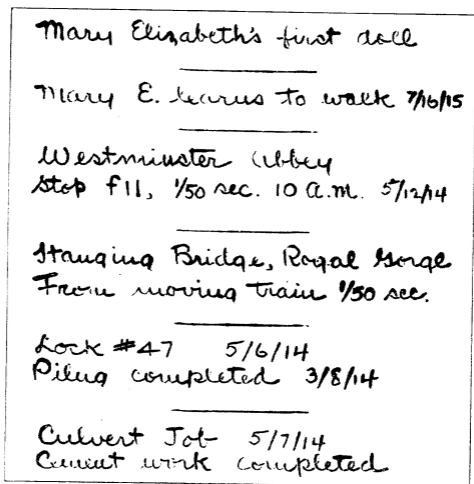 Mary Elizabeth's first doll
Mary E. learns to walk 7/16/15
Westminster Abbey
Stop f11, 1/50 sec. 10 A.M. 5/12/14
Hanging Bridge, Royal Gorge
From moving train 1/50 sec.
Lock #47 5/6/14
Piling completed 3/8/14
Culvert Job 5/7/14
Cement work completed